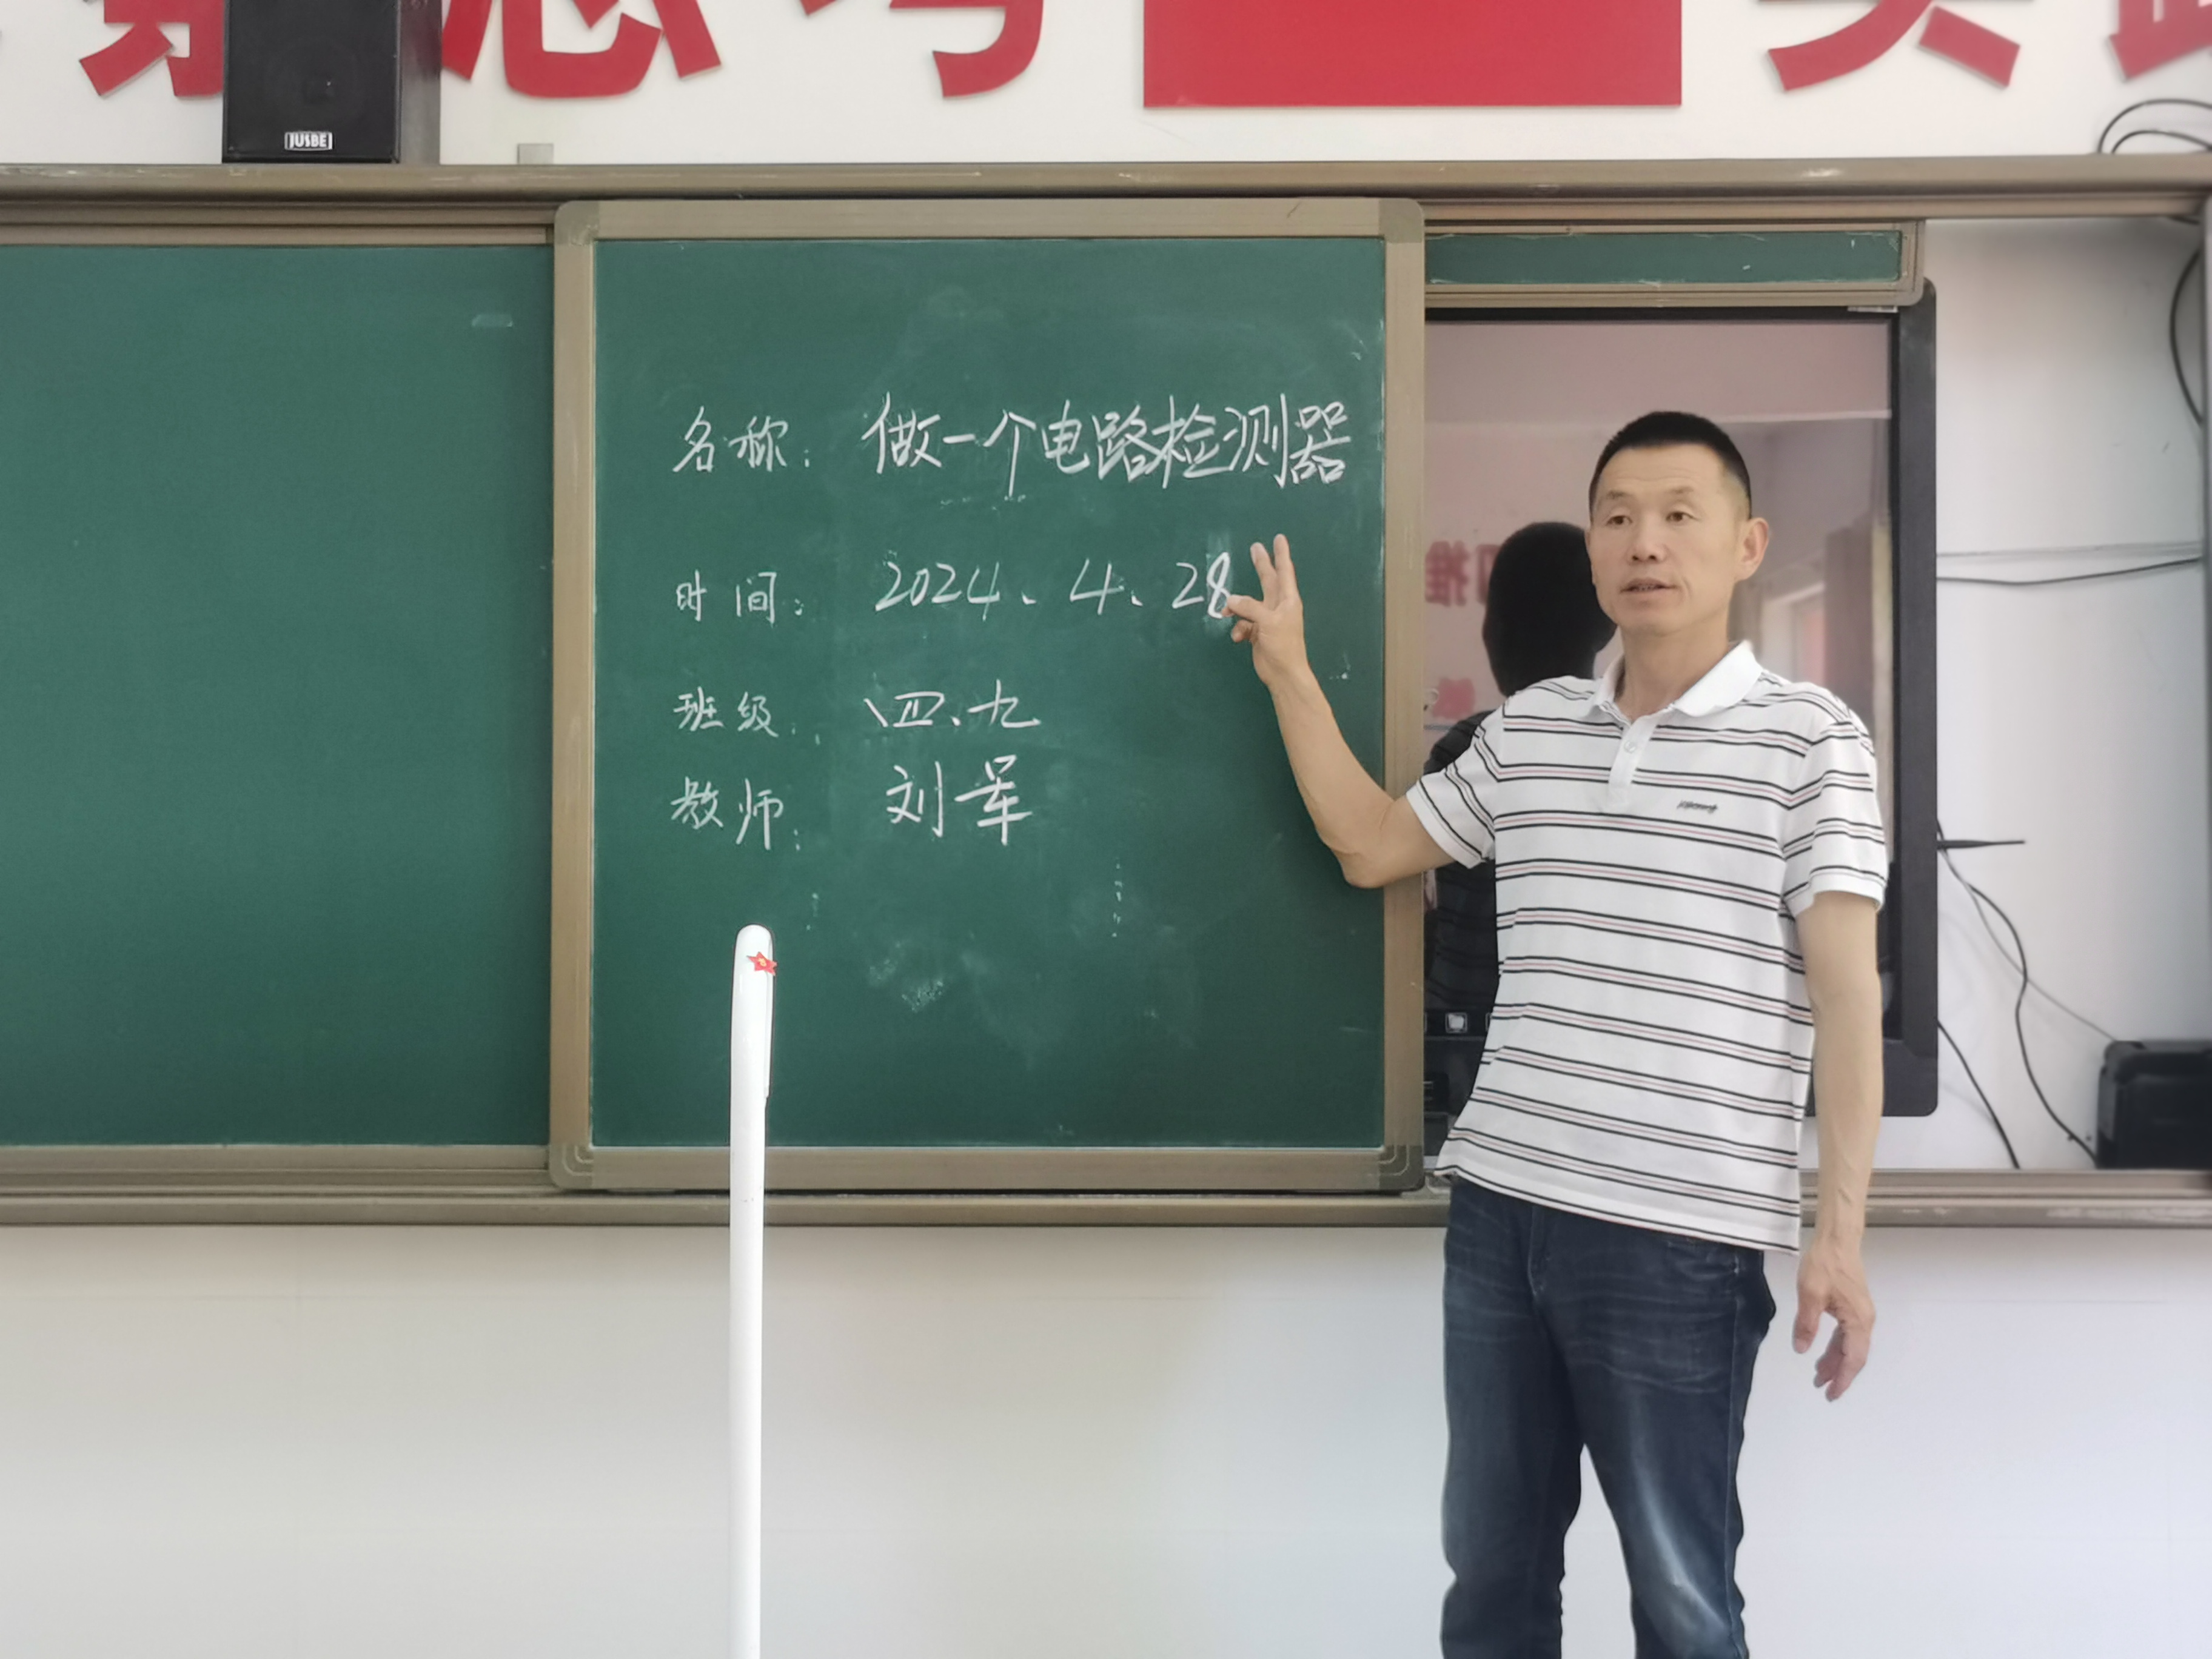 思考
JUSBE
名称: 做一个电路检测器
时间: 2024、4、28
班级: 四、九
教师: 刘军